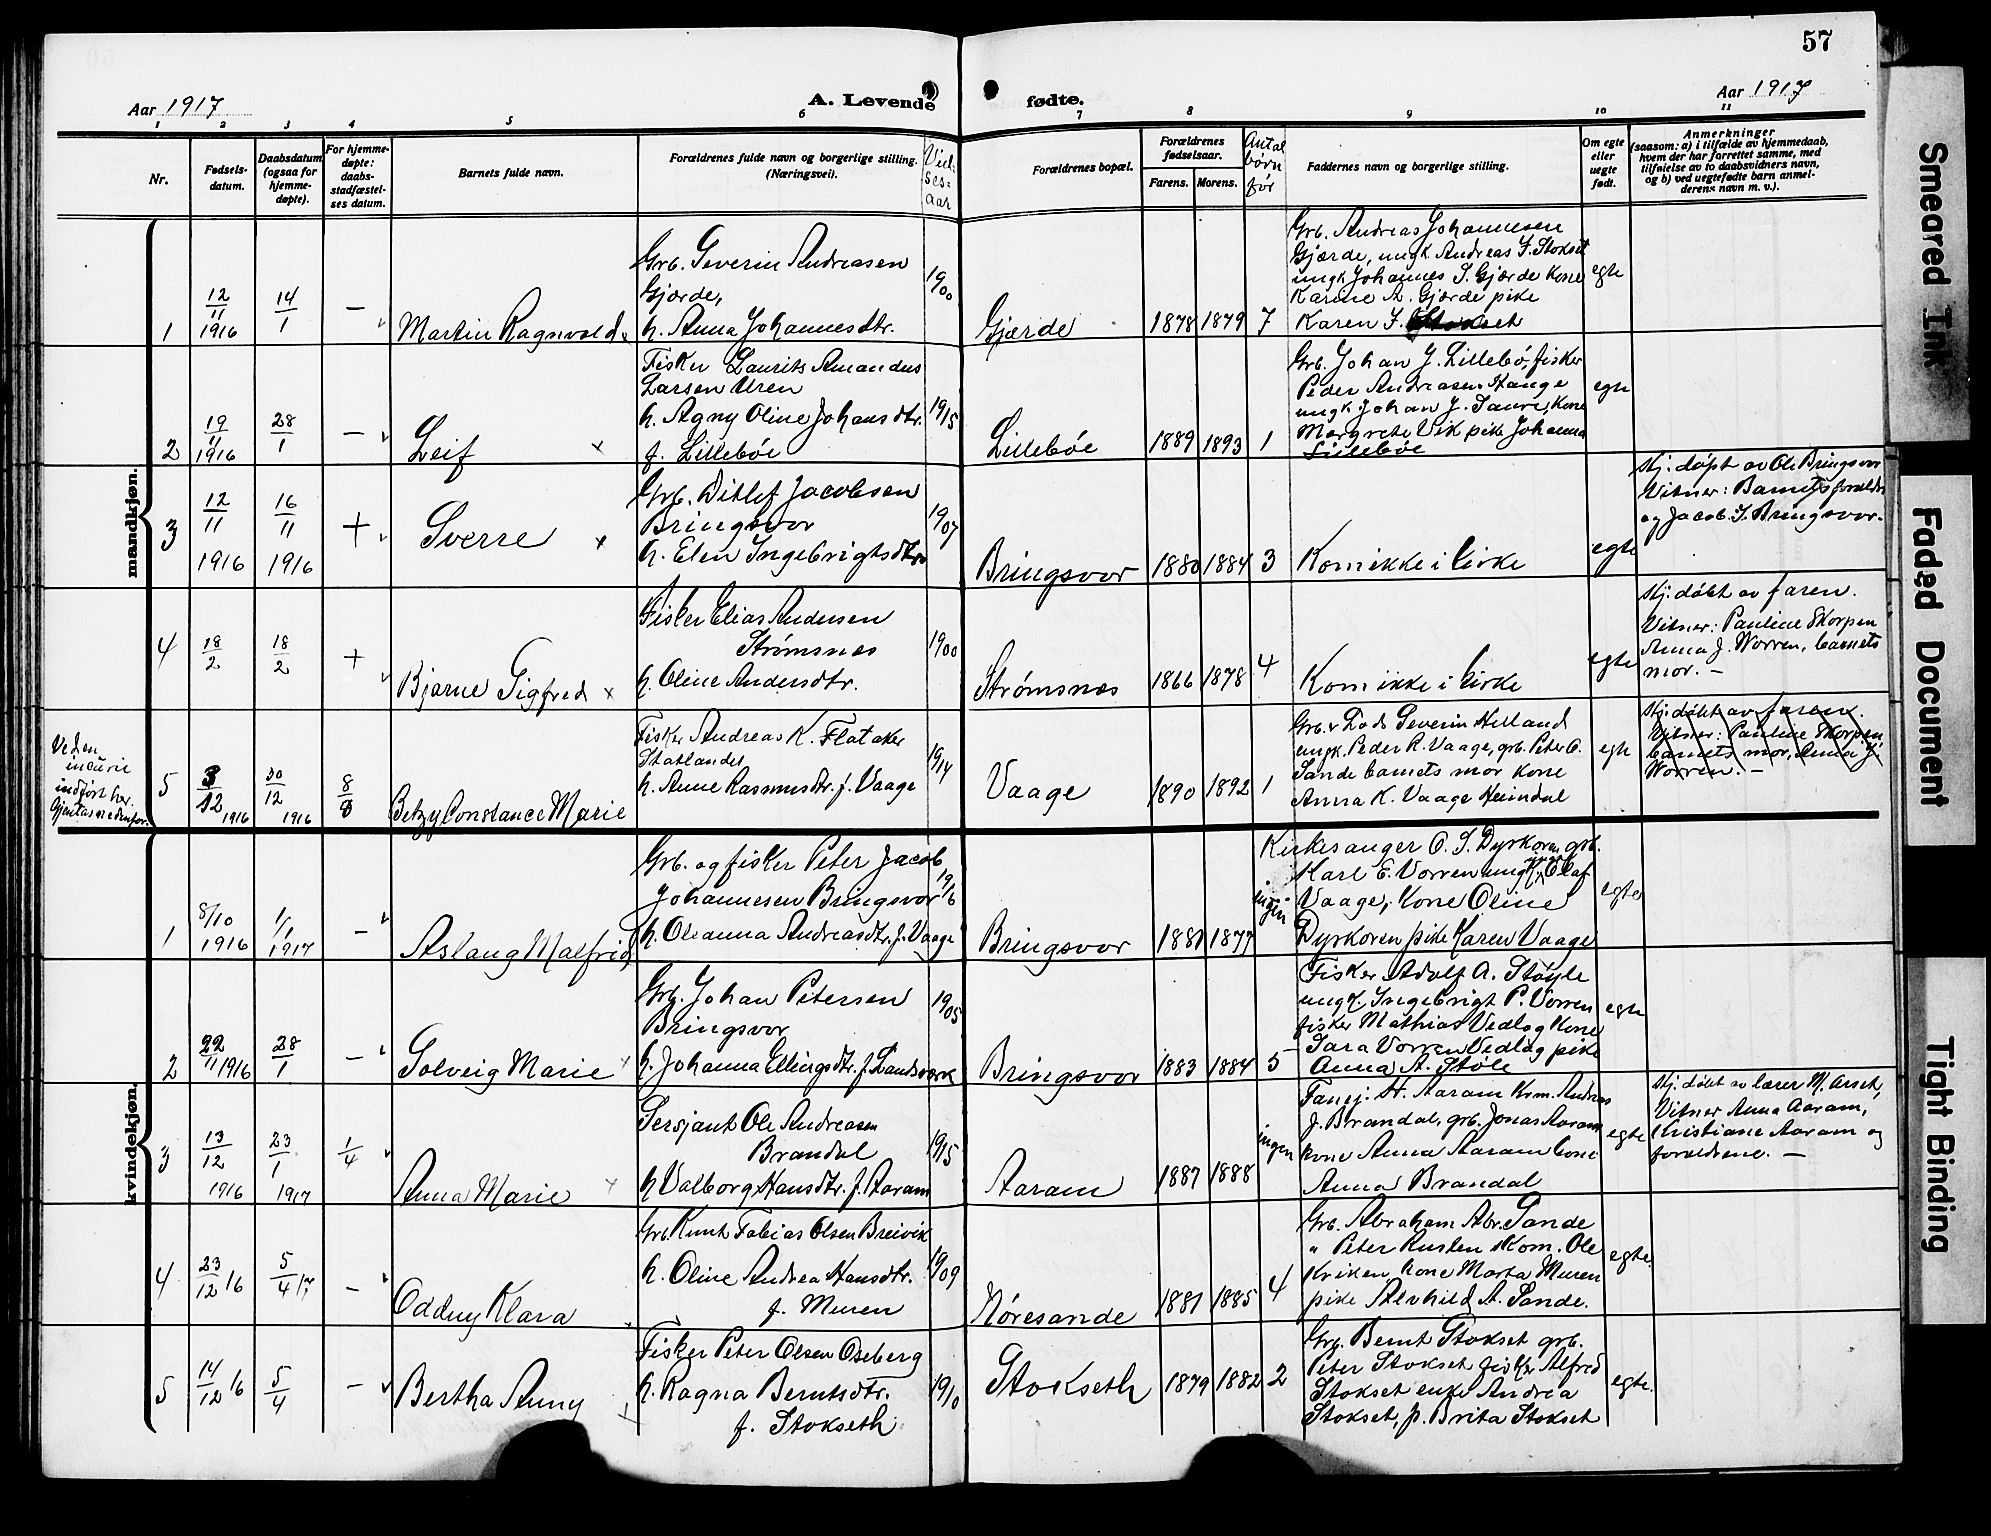 57
Aar 1917
A. Levende fødte.
Aar 1917
1 2 3 4 5 6 7 8 9 10 11
Nr.
Fødsels-
datum.
Daabsdatum
(ogsaa for
hjemme-
døpte).
For hjemme-
døpte:
daabs-
stadfæstel-
ses datum.
Barnets fulde navn.
Forældrenes fulde navn og borgerlige stilling.
(Næringsvei).
Viel-
ses-
aar
Forældrenes bopæl.
Forældrenes
fødselsaar.
Farens. Morens.
Antal
børn
før
Faddernes navn og borgerlige stilling.
Om egte
eller
uegte
født.
Anmerkninger
(saasom: a) i tilfælde av hjemmedaab,
hvem der har forrettet samme, med
tilføielse av to daabsvidners navn,
og b) ved uegtefødte barn anmel-
derens navn m. v.).
mandkjøn.
1
12/11 1916
14/1
—
Martin Ragnvald
Grb. Severin Andreasen
Gjærde,
h. Anna Johannesdtr.
1900
Gjærde
1878 1879 7
Grb. Andreas Johannesen
Gjærde, ungk Andreas J. Stokset
ungk Johannes S. Gjærde kone
Karine A. Gjærde pike
Karen J. Stokset
egte
2
19/11 1916
28/1
—
Leif
Fisker Laurits Amandus
Larsen Uren
h. Agny Oline Johansdtr.
f. Lillebøe
1915
Lillebøe
1889 1893 1
Grb. Johan J. Lillebø, fisker
Peder Andreasen Hauge
ungk. Johan J. Saure, kone
Margrete Vik pike Johanna
Lillebøe
egte
3
12/11 1916
16/11 1916
+
Sverre
Grb. Ditlef Jacobsen
Bringsvor
h. Elen Ingebrigtsdtr.
1907
Bringsvor
1880 1884 3
Kom ikke i kirke
egte
Hj. døpt av Ole Bringsvor
Vitner: Barnets forældre
og Jacob J. Bringsvor.
4
18/2
18/2
+
Bjarne Sigfred
Fisker Elias Andersen
Strømsnes
h. Oline Andersdtr.
1900
Strømsnes
1866 1878 4
Kom ikke i kirke
egte
Hj. døbt av faren.
Vitner: Pauline Skorpen
Anna J. Worren, barnets
mor. —
Ved en
incurie
indført her.
Gjentas nedenfor.
5
3/12 1916
30/12 1916
8/
Betzy Constance Marie
Fisker Andreas K. Flataker
Statlandet
h. Anne Rasmusdtr. f. Vaage
1914
Vaage
1890 1892 1
Severin Helland
ungk. Peder R. Vaage, grb. Peter O.
Sande barnets mor kone
Anna K. Vaage Heimdal
egte
Hj. døbt av faren.
Vitner: Pauline Skorpen
barnets mor, Anna J.
Worren. —
kvindekjøn.
1
8/10 1916
1/1 1917
—
Aslaug Malfrid
Grb. og fisker Peter Jacob
Johannesen Bringsvor
h. Oleanna Andreasdtr. f. Vaage
1916
Bringsvor
1881 1877
ingen
Kirkesanger O. S. Dyrkoren grb.
Karl E. Vorren ungk. Olaf
Vaage, kone Oline
Dyrkoren pike Karen Vaage
egte
2
22/11 1916
28/1
—
Solveig Marie
Grb. Johan Petersen
Bringsvor
h. Johanna Ellingsdtr. f. Landsverk
1905
Bringsvor
1883 1884 5
Fisker Adolf A. Støyle
ungk. Ingebrigt P. Vorren
fisker Mathias Vedlog kone
Sara Vorren Vedlog pike
Anna A. Støle
egte
3
13/12 1916
23/1 1917
1/4
Anna Marie
Sersjant Ole Andreasen
Brandal
h Valborg Hansdtr. f. Aaram
1915
Aaram
1887 1888
ingen
Fanej. H. Aaram Kom. Andreas
J. Brandal, grb. Jonas Aaram
kone Anna Aaram kone
Anna Brandal
egte
Hj. døbt av lærer M. Arset,
Vitner Anna Aaram,
Kristiane Aaram og
forældrene. —
4
23/12 16
5/4 17
—
Oddny Klara
Grb. Knut Tobias Olsen Breivik
h. Oline Andrea Hansdtr.
f. Muren
1909
Nøresande
1881 1885 4
Grb. Abraham Abr. Sande
" Peter Rusten Kom. Ole
Kriken kone Marta Muren
pike Alvhild A. Sande.
egte
5
14/12 16
5/4
—
Bertha Anny
Fisker Peter Olsen Oseberg
h. Ragna Berntsdtr.
f. Stokseth
1910
Stokseth
1879 1882 2
Grb. Bernt Stokset grb.
Peter Stokset fisker Alfred
Stokset enke Andrea
Stokset, p. Brita Stokset
egte.
Smeared Ink
Faded Document
Tight Binding